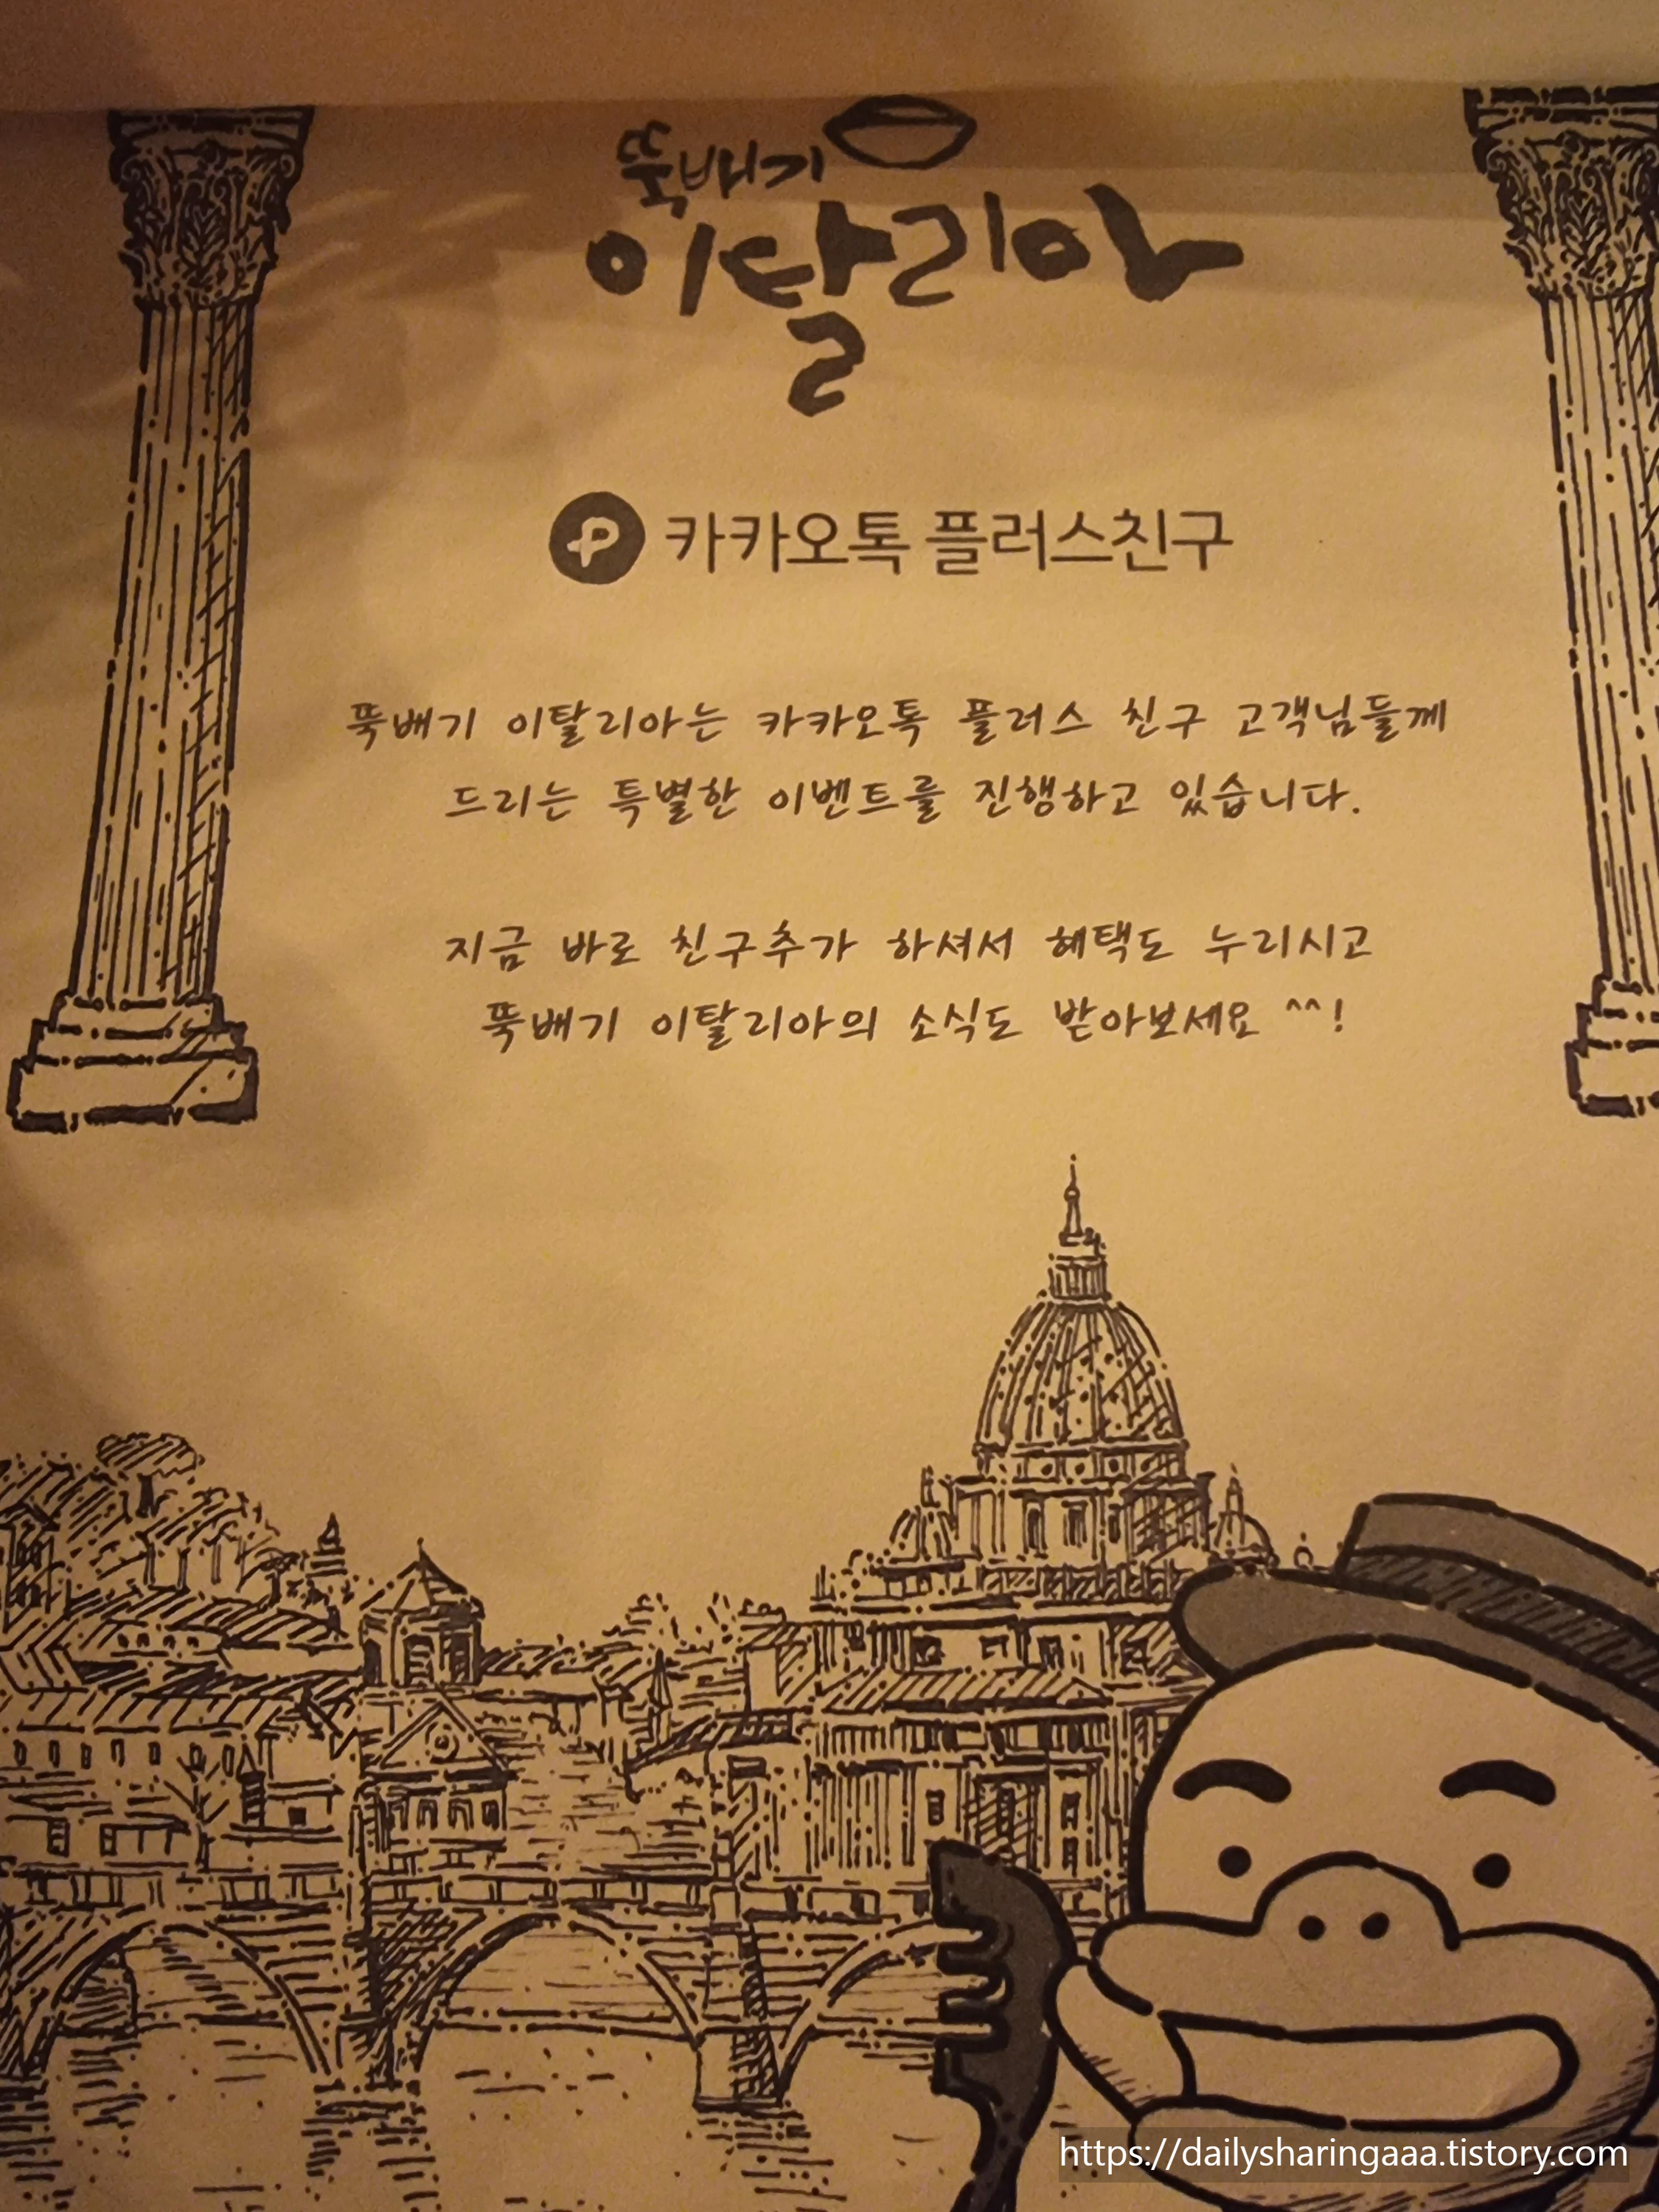 뚝배기
이탈리아
카카오톡 플러스친구
뚝배기 이탈리아는 카카오톡 플러스 친구 고객님들께
드리는 특별한 이벤트를 진행하고 있습니다.
지금 바로 친구추가 하셔서 혜택도 누리시고
뚝배기 이탈리아의 소식도 받아보세요 ^^!
https://dailysharingaaa.tistory.com